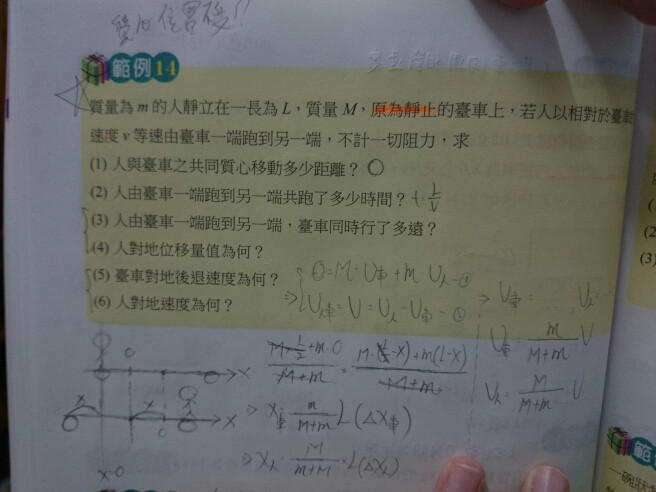 質心位置變!!
範例14
質量為 m 的人靜立在一長為 L，質量 M，原為靜止的臺車上，若人以相對於臺車
速度 v 等速由臺車一端跑到另一端，不計一切阻力，求
(1) 人與臺車之共同質心移動多少距離？ 0
(2) 人由臺車一端跑到另一端共跑了多少時間？ t=L/V
(3) 人由臺車一端跑到另一端，臺車同時行了多遠？
(4) 人對地位移量值為何？
(5) 臺車對地後退速度為何？
(6) 人對地速度為何？
0=M·U車+m U人-①
⇒ U人車=V=U人-U車-②
⇒ U車= , U人=
U車 m/(M+m) V
U人= M/(M+m) V
(M·L/2+m·0)/(M+m) = (M·(L/2-X)+m(L-X))/(M+m)
⇒ X車 m/(M+m) L (ΔX車)
⇒ X人= M/(m+M)·L (ΔX人)
X
X
X
X
C
C
X=0
範
一碗狀
(2)
(3)